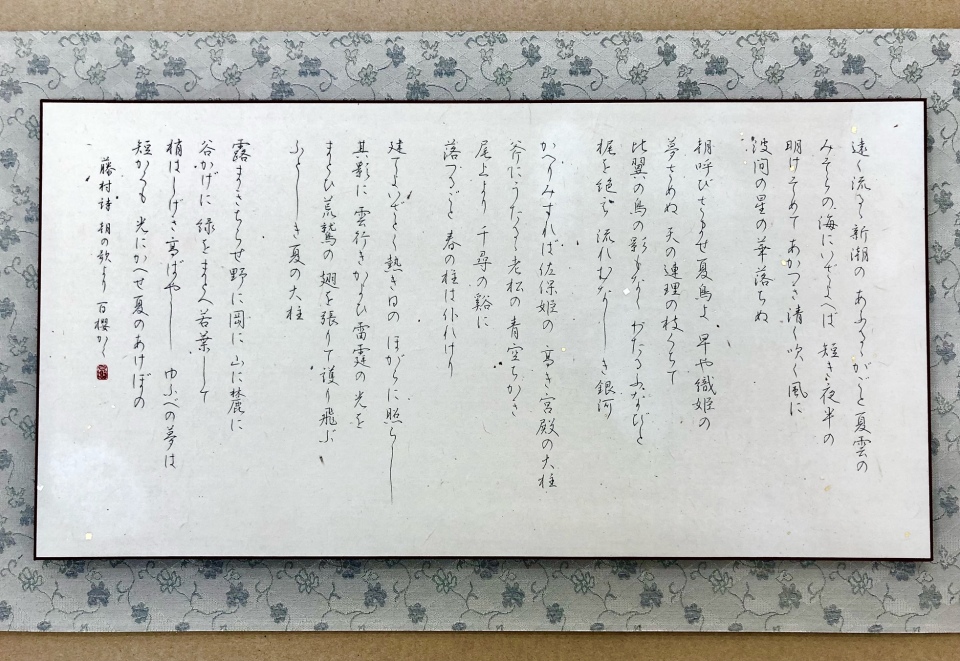 遠く流るゝ新潮の あふるゝがごと夏雲の
みそらの海にいざよへば 短き夜半の
明けそめて あかつき清く吹く風に
波間の星の華落ちぬ
相呼びさませ夏鳥よ 早や織姫の
夢さめぬ 天の連理の枝くちて
比翼の鳥の影もなし わたるふなびと
梶を絶え 流れむなしき銀河
かへりみすれば佐保姫の 高き宮殿の大柱
斧にうたるゝ老松の 青空ちかき
尾上より 千尋の谿に
落つるごと 春の柱は仆れけり
建てよいざとく熱き日の ほがらに照らし
其影に 雲行きかよひ雷霆の光を
まとひ荒鷲の 翅を張りて護り飛ぶ
ふとしき夏の大柱
露まきちらせ野に岡に 山に麓に
谷かげに 緑をまとへ若葉して
梢はしげき高ばやし ゆふべの夢は
短かくも 光にかへせ夏のあけぼの
藤村詩 朝の歌より 百櫻かく